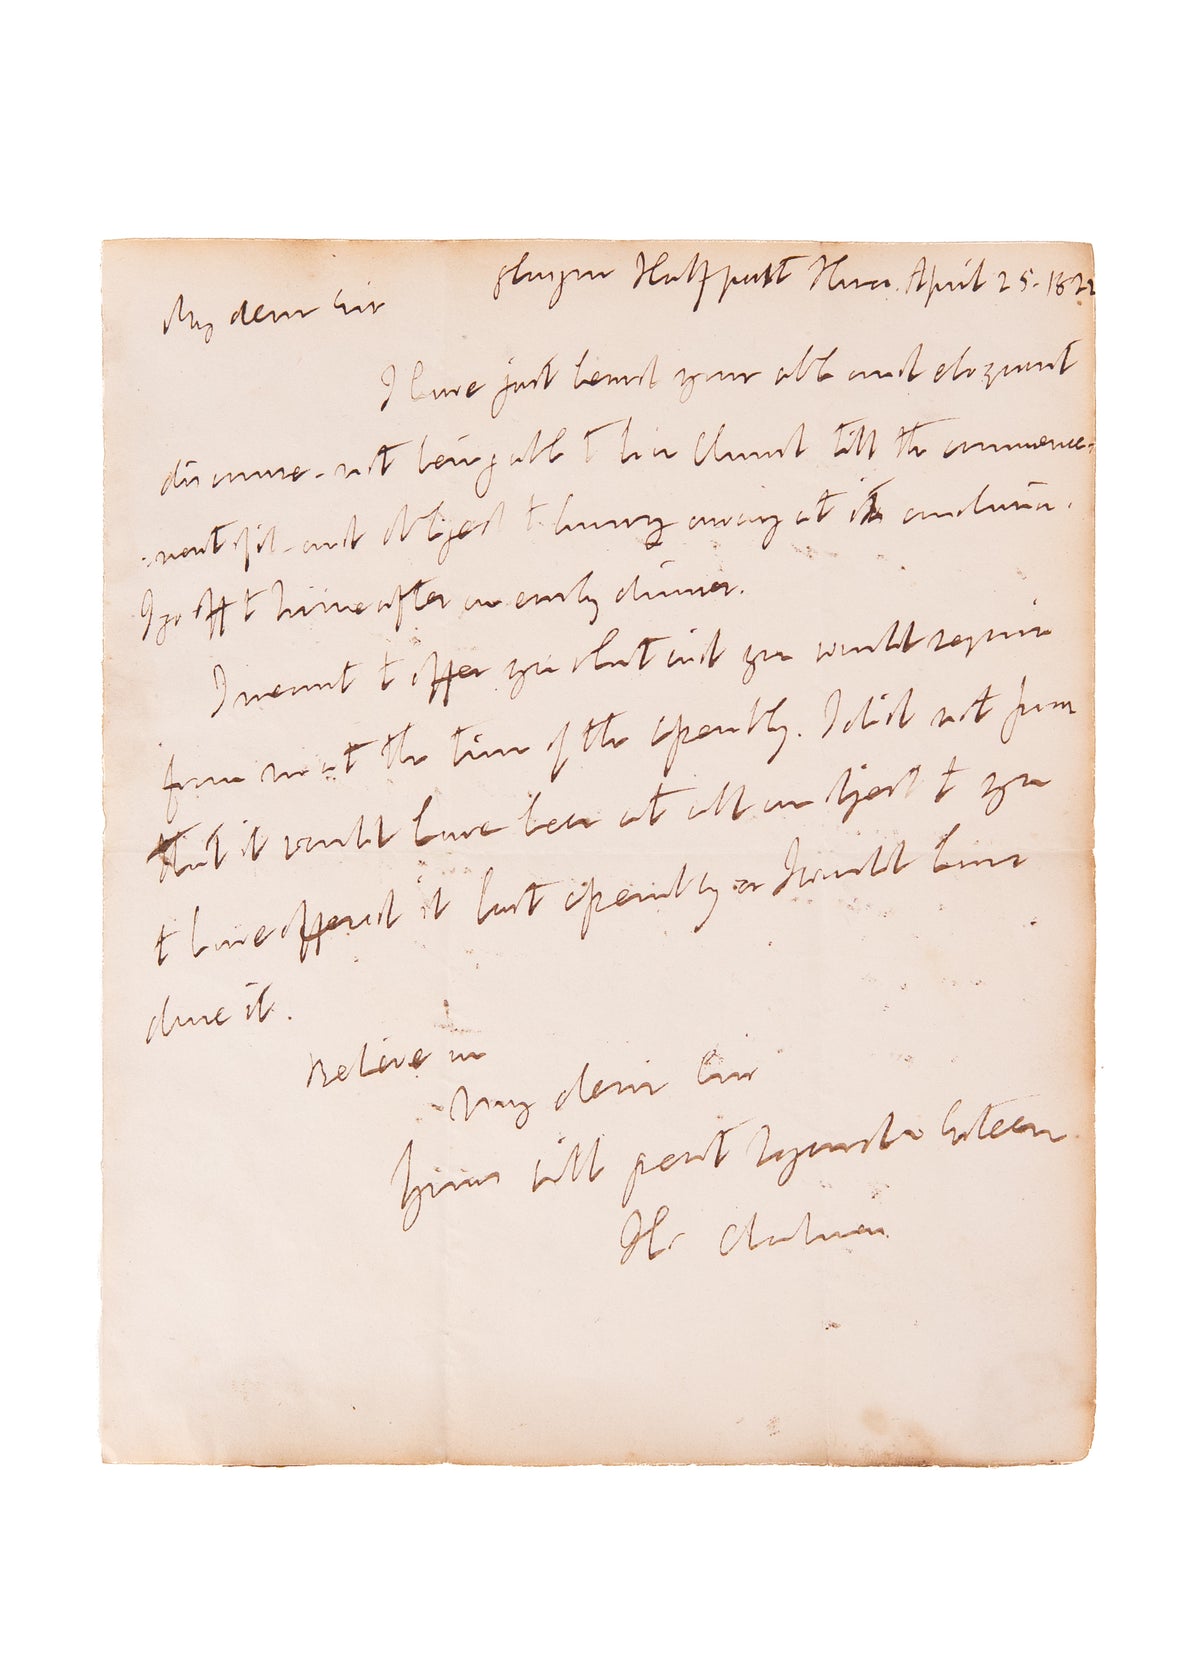 Glasgow Half past Three. April 25. 1822
My dear Sir
I have just heard your able and eloquent
discourse - not being able to be in Church till the commence=
=ment of it - and obliged to hurry away at its conclusion.
I go off to home after an early dinner.
I meant to offer you what aid you would require
from me at the time of the Assembly. I did not
that it would have been at all an object to you
to have offered it last Assembly or I would have
done it.
Believe me
My dear Sir
Yours with great regard & Esteem
Thos Chalmers